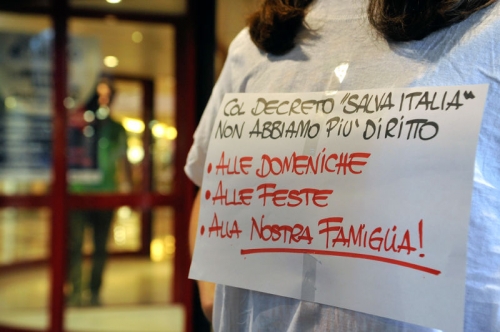 COL DECRETO "SALVA ITALIA"
NON ABBIAMO PIU' DIRITTO
• ALLE DOMENICHE
• ALLE FESTE
• ALLA NOSTRA FAMIGLIA!